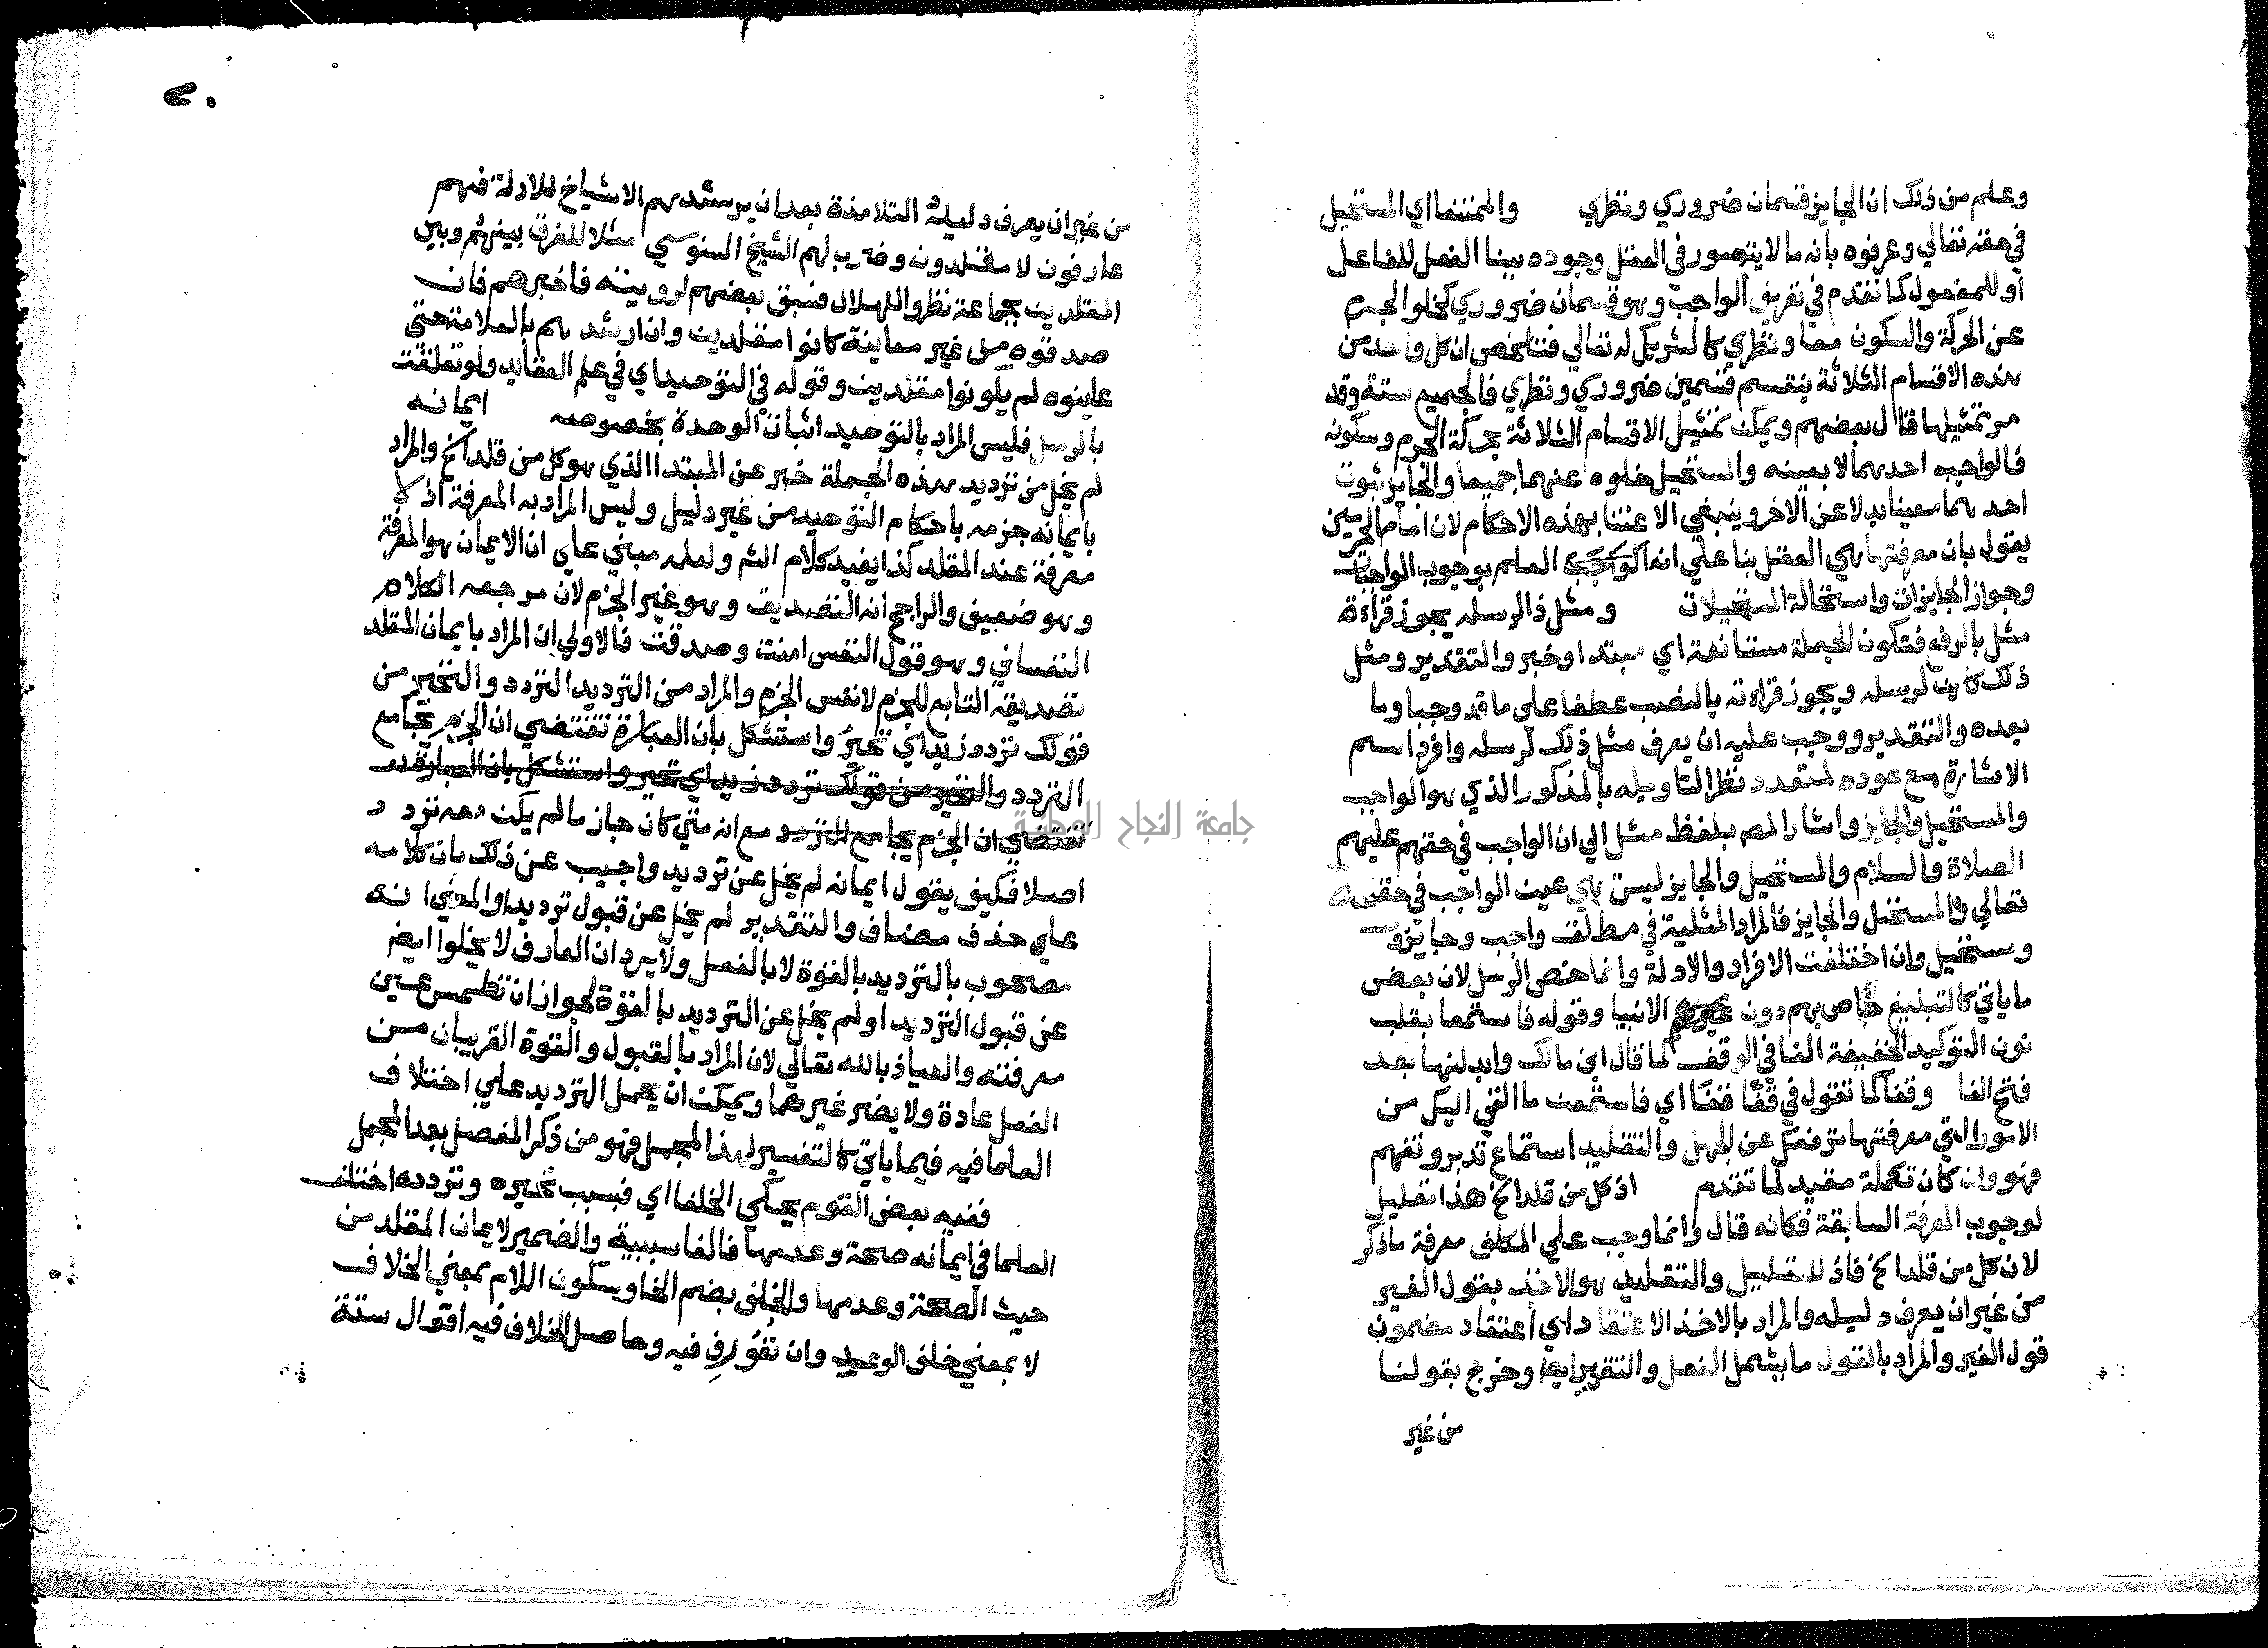 وعلم من ذلك ان الجايز قسمان ضروري ونظري والممتنعا اي المستحيل
في حقه تعالي وعرفوه بانه ما لا يتصور في العقل وجوده ببنا الفعل للفاعل
او للمفعول كما تقدم في تعريف الواجب وهو قسمان ضروري كخلو الجرم
عن الحركة والسكون معا ونظري كالشريك له تعالي فتلخص ان كل واحد من
هذه الاقسام الثلاثة ينقسم قسمين ضروري ونظري فالجميع ستة وقد
مر تمثيلها قال بعضهم ويمكن تمثيل الاقسام الثلاثة بحركة الجرم وسكونه
فالواجب احدهما لا بعينه والمستحيل خلوه عنهما جميعا والجايز ثبوت
احدهما معينا بدلا عن الاخر وينبغي الاعتنا بهذه الاحكام لان امام الحرمين
يقول بان معرفتها هي العقل بنا علي انه العلم بوجوب الواجبات
وجواز الجايزات واستحالة المستحيلات ومثل ذا لرسله يجوز قراءة
مثل بالرفع فتكون الجملة مستانفة اي مبتدا وخبر والتقدير ومثل
ذلك كاين لرسله ويجوز قراءته بالنصب عطفا علي ما قد وجبا وما
بعده والتقدير ووجب عليه ان يعرف مثل ذلك لرسله وافرد اسم
الاشارة مع عوده لمتعدد نظرا لتاويله بالمذكور الذي هو الواجب
والمستحيل والجايز واشار المصه بلفظ مثل الي ان الواجب في حقهم عليهم
الصلاة والسلام والمستحيل والجايز ليست هي عين الواجب في حقه
تعالي والمستحيل والجايز فالمراد المثلية في مطلق واجب وجايز و
ومستحيل وان اختلفت الافراد والادلة وانما خص الرسل لان بعض
ما ياتي كالتبليغ خاص بهم دون الانبيا وقوله فاستمعا بقلب
نون التوكيد الخفيفة الفا في الوقف كما قال ابن مالك وابدلنها بعد
فتح الفا وقفا كما تقول في قفن قفا اي فاستمعن ما القي اليك من
الامور التي معرفتها ترفعك عن الجهل والتقليد استماع تدبر وتفهم
فهو وان كان تكملة مفيد لما تقدم اذ كل من قلد الخ هذا تعليل
لوجوب المعرفة السابقة فكانه قال وانما وجب علي المكلف معرفة ما ذكر
لان كل من قلد الخ فاذ للتعليل والتقليد هو الاخذ بقول الغير
من غير ان يعرف دليله والمراد بالاخذ الاعتقاد اي اعتقاد مضمون
قول الغير والمراد بالقول ما يشمل الفعل والتقرير ايضا وخرج بقولنا
من غير
٢٠
من غير ان يعرف دليله التلامذة بعد ان يرشدهم الاشياخ للادلة فهم
عارفون لا مقلدون وضرب لهم الشيخ السنوسي مثلا للفرق بينهم وبين
المقلدين بجماعة نظروا للهلال فسبق بعضهم لرويته فاخبرهم فان
صدقوه من غير معاينة كانوا مقلدين وان ارشدهم بالعلامة حتي
عاينوه لم يكونوا مقلدين وقوله في التوحيد اي في علم العقايد ولو تعلقت
بالرسل فليس المراد بالتوحيد اثبات الوحدة بخصوصه ايمانه
لم يخل من ترديد هذه الجملة خبر عن المبتدا الذي هو كل من قلد الخ والمراد
بايمانه جزمه باحكام التوحيد من غير دليل وليس المراد به المعرفة اذ لا
معرفة عند المقلد كذا يفيد كلام الشه ولعله مبني علي ان الايمان هو المعرفة
وهو ضعيف والراجح انه التصديق وهو غير الجزم لان مرجعه الكلام
النفساني وهو قول النفس امنت وصدقت فالاولي ان المراد بايمان المقلد
تصديقه التابع للجزم لا نفس الجزم والمراد من الترديد التردد والتحير من
قولك تردد زيد اي تحير واستشكل بان العبارة تقتضي ان الجزم يجامع
التردد والتحير من قولك تردد زيد اي تحير واستشكل بان العبارة
تقتضي ان الجزم يجامع التردد مع انه متي كان جازما لم يكن معه تردد
اصلا فكيف يقول ايمانه لم يخل عن ترديد واجيب عن ذلك بان كلامه
علي حذف مضاف والتقدير لم يخل عن قبول ترديد او المعني انه
مصحوب بالترديد بالقوة لا بالفعل ولا يرد ان العارف لا يخلوا ايض
عن قبول الترديد او لم يخل عن الترديد بالقوة لجواز ان تطمس عين
معرفته والعياذ بالله تعالي لان المراد بالقبول والقوة القريبان من
الفعل عادة ولا يضر غيرهما ويمكن ان يحمل الترديد علي اختلاف
العلما فيه فيما ياتي كالتفسير لهذا المجمل فهو من ذكر المفصل بعد المجمل
ففيه بعض القوم يحكي الخلفا اي فبسبب تحيره وتردده اختلف
العلما في ايمانه صحة وعدمها فالفا سببية والضمير لايمان المقلد من
حيث الصحة وعدمها والخلف بضم الخا وسكون اللام بمعني الخلاف
لا بمعني خلف الوعيد وان تعورف فيه وحاصل الخلاف فيه اقوال ستة
جامعة النجاح الوطنية